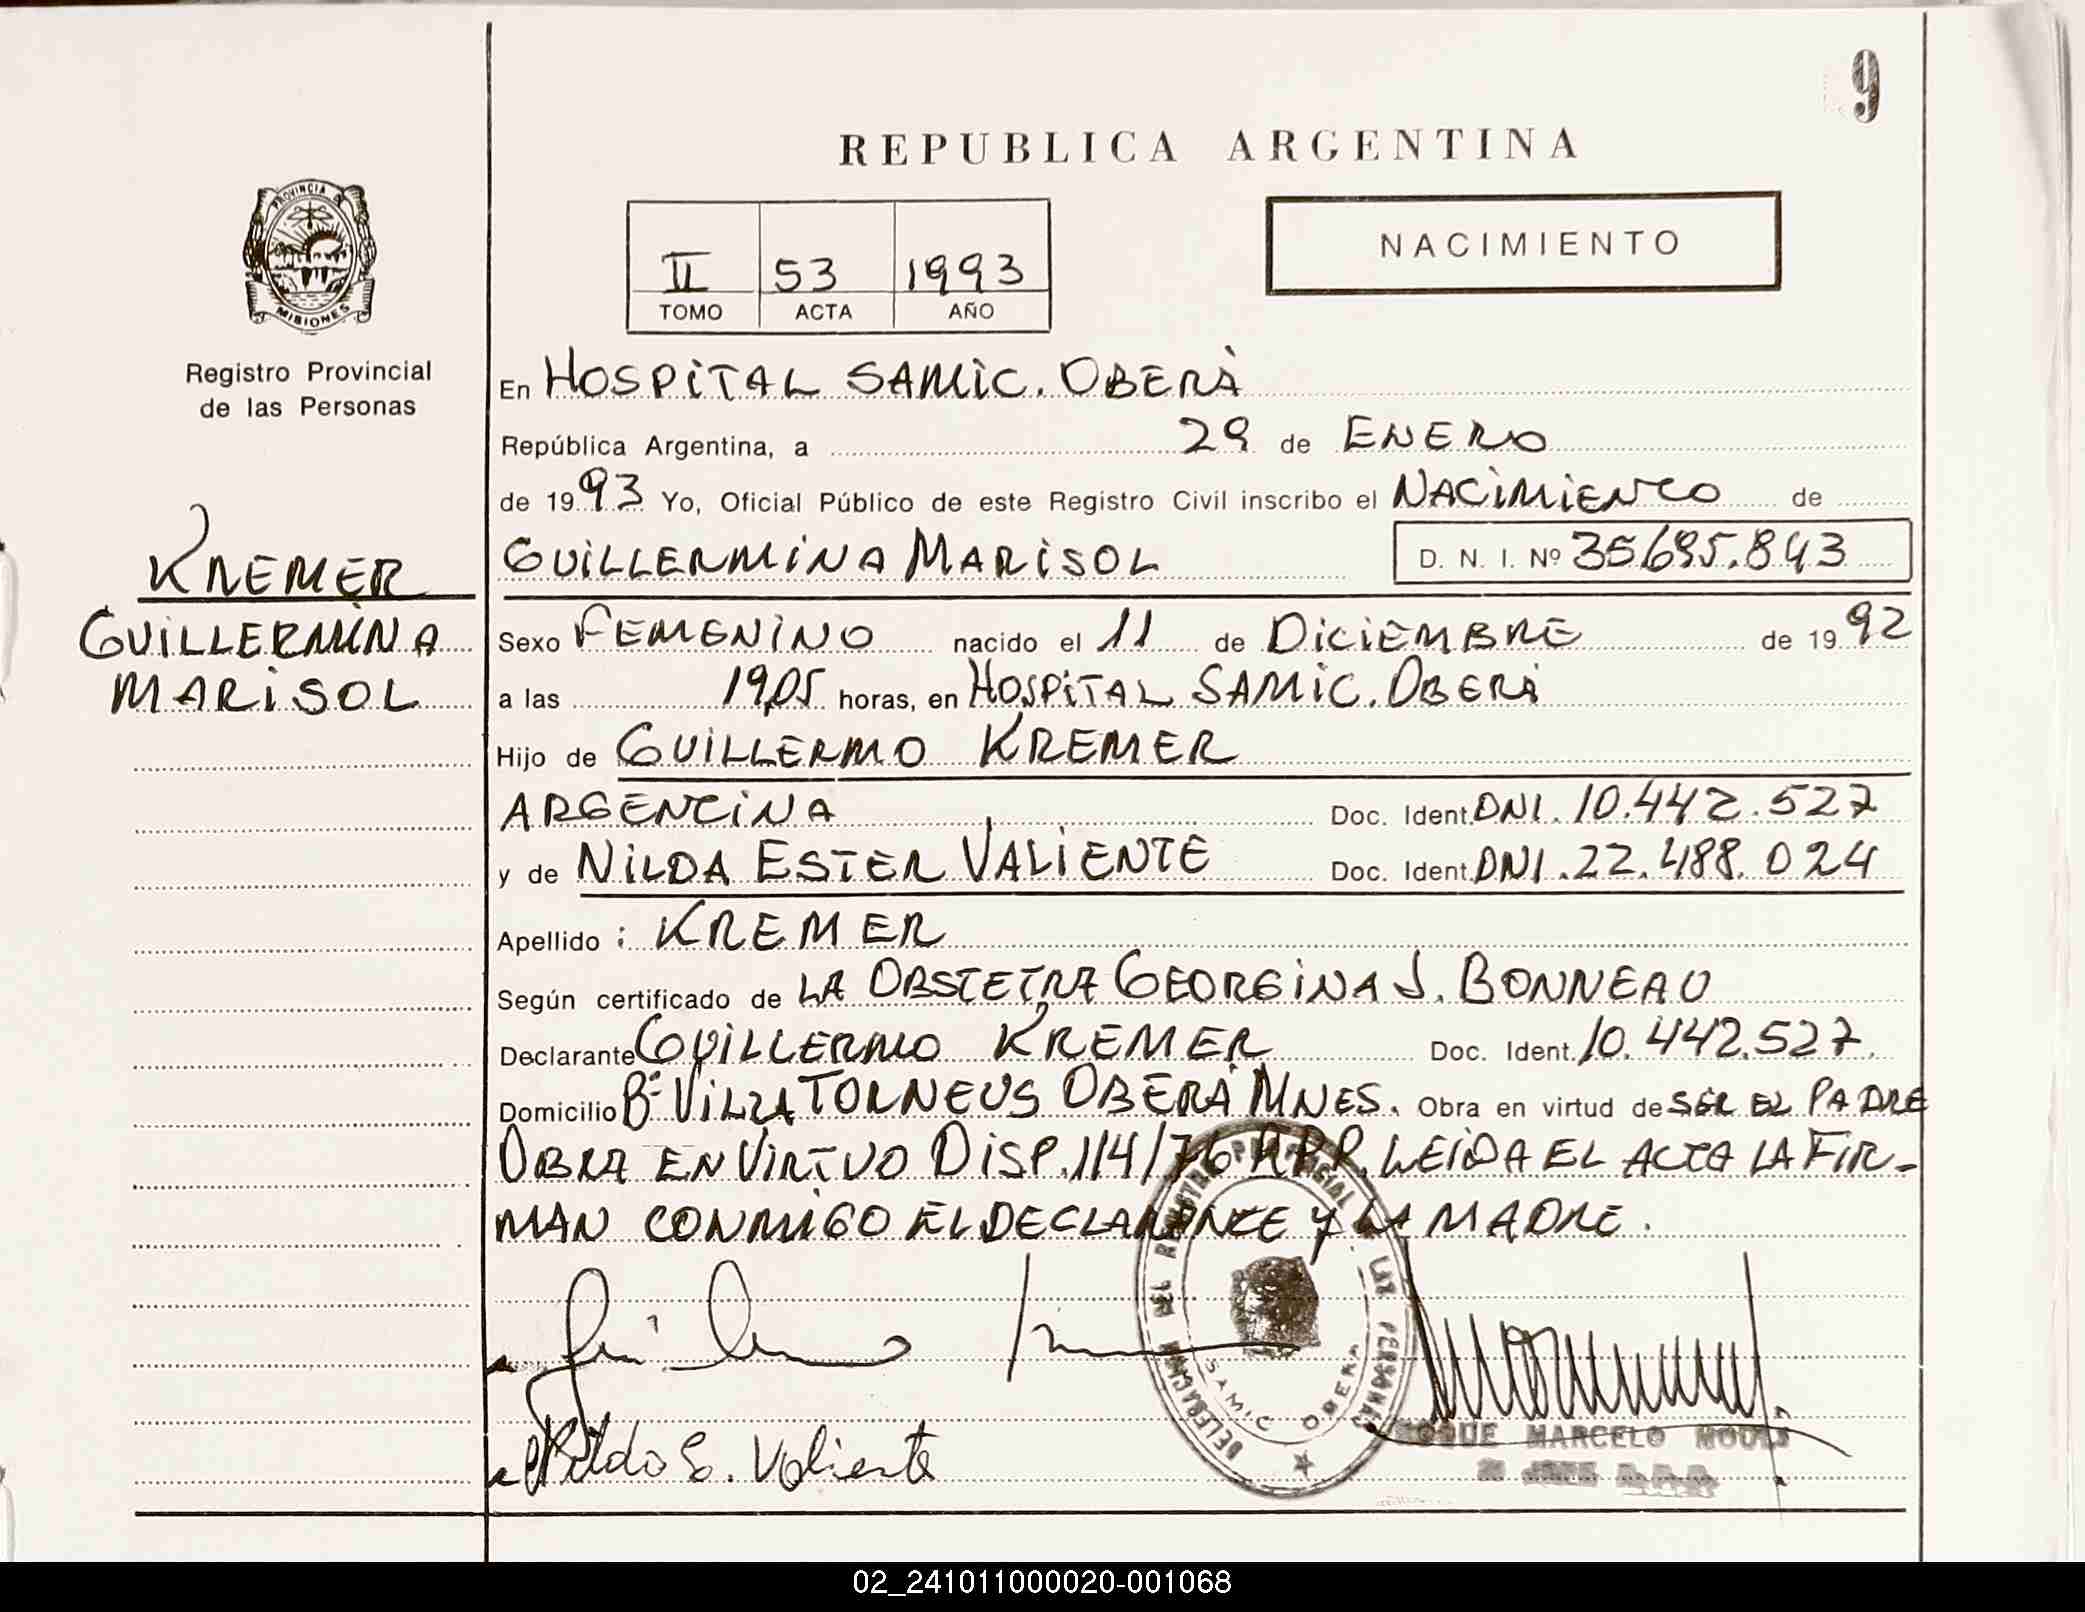 9
REPUBLICA ARGENTINA
PROVINCIA DE MISIONES
II 53 1993
TOMO ACTA AÑO
NACIMIENTO
Registro Provincial
de las Personas
KREMER
GUILLERMINA
MARISOL
En HOSPITAL SAMIC. OBERÁ
República Argentina, a 29 de ENERO
de 1993 Yo, Oficial Público de este Registro Civil inscribo el NACIMIENTO de
GUILLERMINA MARISOL D. N. I. Nº 35.695.843
Sexo FEMENINO nacido el 11 de DICIEMBRE de 1992
a las 19,05 horas, en HOSPITAL SAMIC. OBERÁ
Hijo de GUILLERMO KREMER
ARGENTINA Doc. Ident. DNI. 10.442.527
y de NILDA ESTER VALIENTE Doc. Ident. DNI. 22.488.024
Apellido : KREMER
Según certificado de LA OBSTETRA GEORGINA J. BONNEAU
Declarante GUILLERMO KREMER Doc. Ident. 10.442.527.
Domicilio Bº VILLA TORNEUS OBERÁ MNES. Obra en virtud de SER EL PADRE
OBRA EN VIRTUD DISP. 114/76 RPP. LEIDA EL ACTA LA FIR-
MAN CONMIGO EL DECLARANTE Y LA MADRE.
DELEGACION DEL REGISTRO PROVINCIAL DE LAS PERSONAS
SAMIC OBERA
Nilda E. Valiente
ROQUE MARCELO
02_241011000020-001068